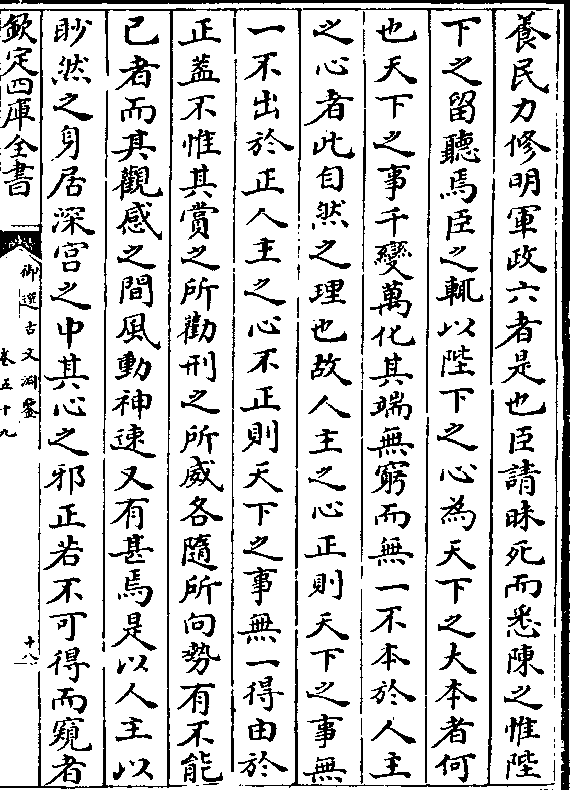 養民力修明軍政六者是也臣請昧死而悉陳之惟陛
下之留聽焉臣之輒以陛下之心為天下之大本者何
也天下之事千變萬化其端無窮而無一不本於人主
之心者此自然之理也故人主之心正則天下之事無
一不出於正人主之心不正則天下之事無一得由於
正蓋不惟其賞之所勸刑之所威各隨所向勢有不能
已者而其觀感之間風動神速又有甚焉是以人主以
眇然之身居深宫之中其心之邪正若不可得而窺者
欽定四庫全書
御選古文淵鑒
卷五十九
十八